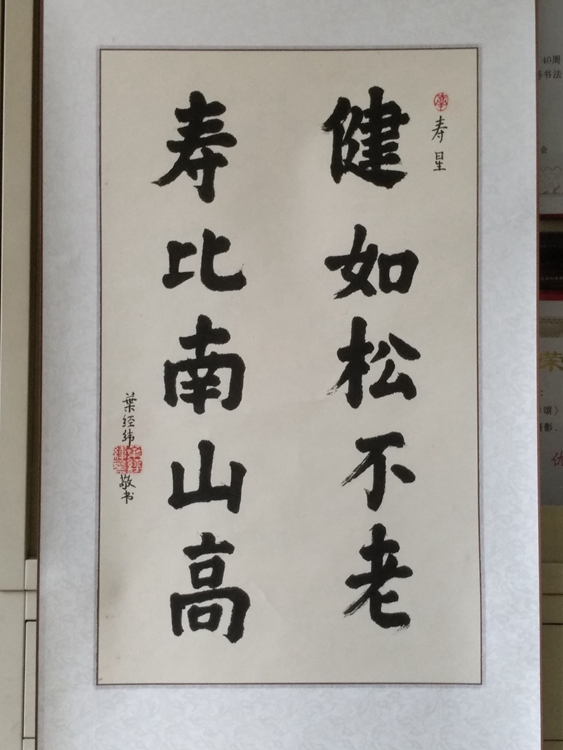 寿星
健如松不老
寿比南山高
葉经纬
敬书
40周
书法
会
荣